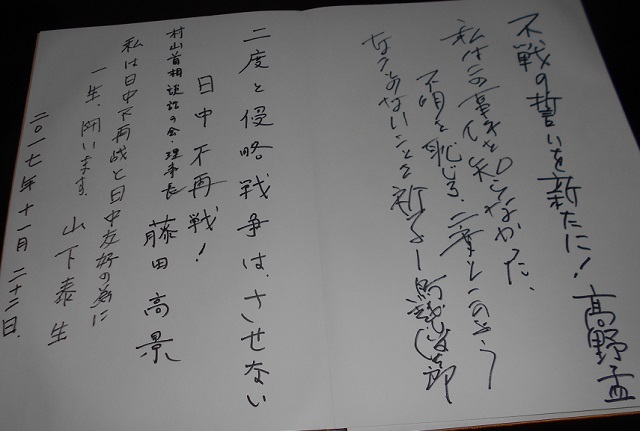 不戦の誓いを新たに! 髙野孟
私はこの事件を知らなかった、
不明を恥じる、二度とこのよう
なことのないことを祈るー
二度と侵略戦争は、させない
日中不再戦!
村山首相談話の会・理事長 藤田高景
私は日中不再戦と日中友好の為に
一生、闘います。 山下泰生
二〇一七年十一月二十二日.